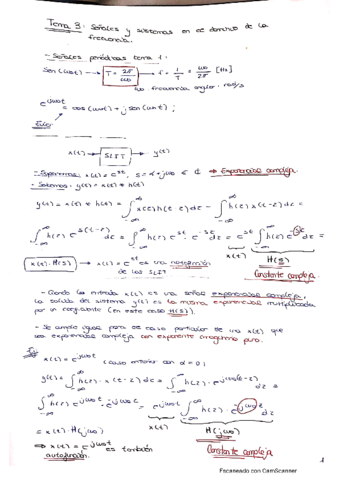 Tema 3: Señales y sistemas en el dominio de la
frecuencia.
- Señales periódicas tema 1:
sen(ω₀t) → T = 2π/ω₀ → f = 1/T = ω₀/2π [Hz]
ω₀ frecuencia angular rad/s
e^{jω₀t} = cos(ω₀t) + j sen(ω₀t);
Euler
x(t) → SLIT → y(t)
- Suponemos: x(t) = e^{st}, s = α + jω₀ ∈ ℂ ⇒ Exponencial compleja.
- Sabemos: y(t) = x(t) * h(t)
y(t) = x(t) * h(t) = ∫_{-∞}^{∞} x(τ) h(t-τ) dτ = ∫_{-∞}^{∞} h(τ) x(t-τ) dτ =
∫_{-∞}^{∞} h(τ) e^{s(t-τ)} dτ = ∫_{-∞}^{∞} h(τ) e^{st} · e^{-sτ} dτ = e^{st} ∫_{-∞}^{∞} h(τ) e^{-sτ} dτ =
x(t) H(s)
x(t) · H(s) → x(t) = e^{st} es una autofunción
de los SLIT
Constante compleja
- Cuando la entrada x(t) es una señal exponencial compleja,
la salida del sistema y(t) es la misma exponencial multiplicada
por un coeficiente (en este caso H(s)).
- Se cumple igual para el caso particular de una x(t) que
sea exponencial compleja con exponente imaginario puro.
x(t) = e^{jω₀t} (caso anterior con α = 0);
y(t) = ∫_{-∞}^{∞} h(τ) x(t-τ) dτ = ∫_{-∞}^{∞} h(τ) · e^{jω₀(t-τ)} dτ =
∫_{-∞}^{∞} h(τ) e^{jω₀t} · e^{-jω₀τ} dτ = e^{jω₀t} ∫_{-∞}^{∞} h(τ) · e^{-jω₀τ} dτ
x(t) H(jω₀)
= x(t) · H(jω₀)
⇒ x(t) = e^{jω₀t} es también
autofunción.
Constante compleja
1
Escaneado con CamScanner